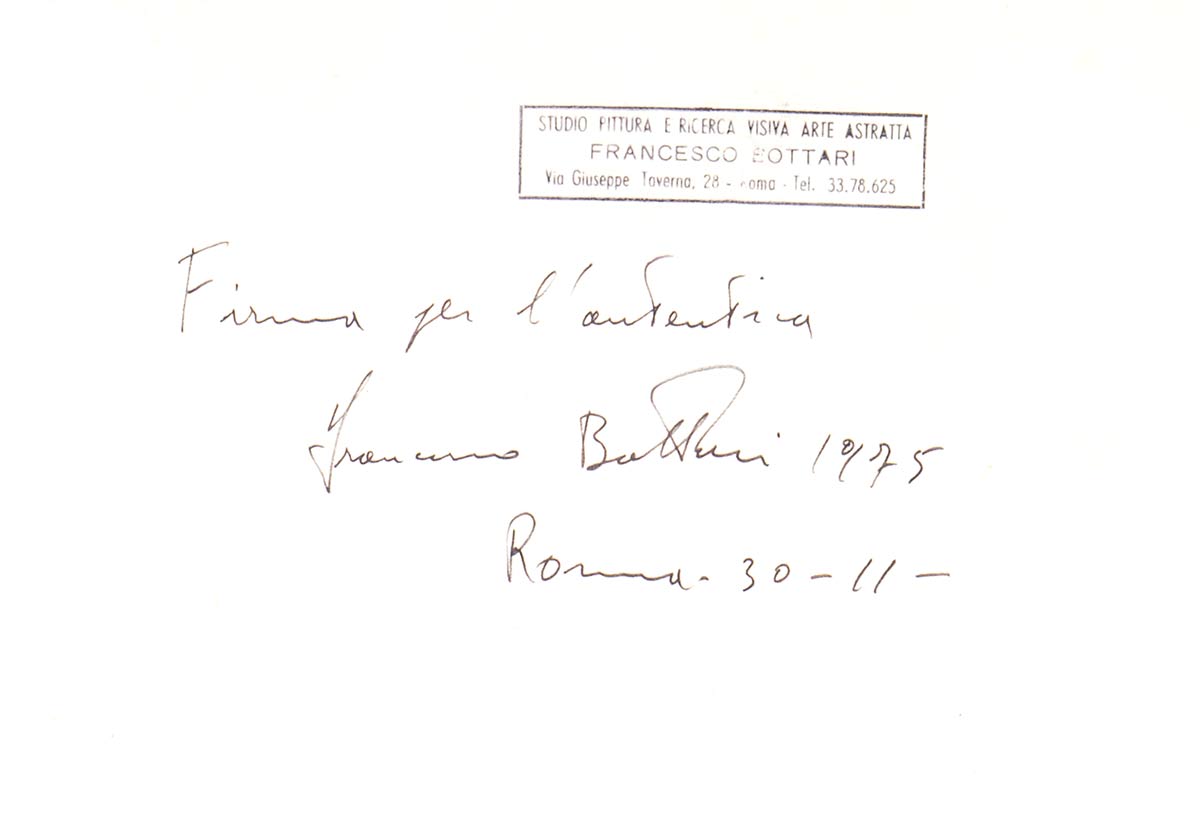 STUDIO PITTURA E RICERCA VISIVA ARTE ASTRATTA
FRANCESCO BOTTARI
Via Giuseppe Taverna, 28 - Roma - Tel. 33.78.625
Firma per l'autentica
Francesco Bottari 1975
Roma - 30 - 11 -